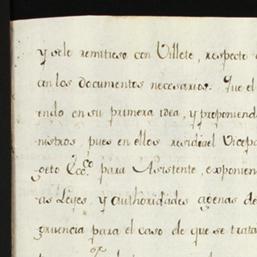 y se le remitieso con Villete, respecto
can los documentos necesarios. Que el
endo en su primera idea, y proponiend
nistros, pues en ellos residiael Vicepa
geto Ecc.co para Asistente, exponien
as Leyes, y authoridades agenas de
gruencia para el caso de que se trata